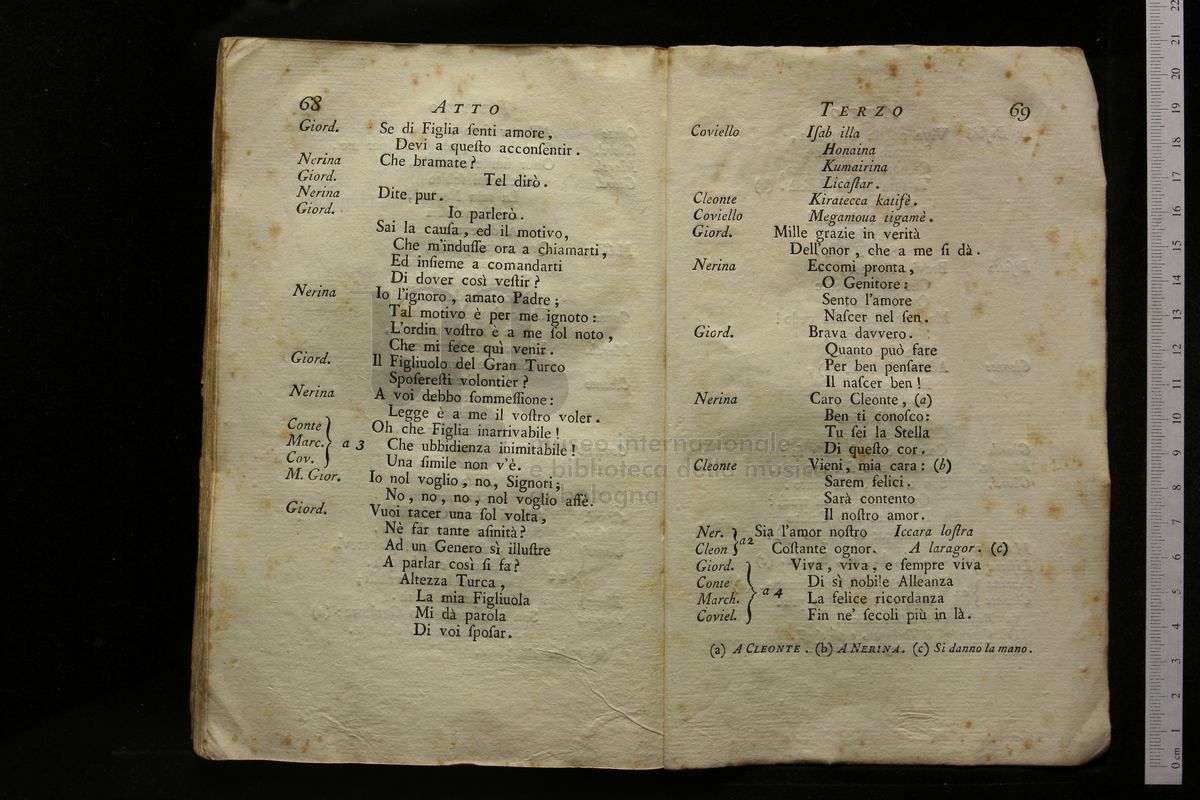 68 ATTO
Giord. Se di Figlia ſenti amore,
Devi a queſto acconſentir.
Nerina Che bramate?
Giord. Tel dirò.
Nerina Dite pur.
Giord. Io parlerò.
Sai la cauſa, ed il motivo,
Che m'induſſe ora a chiamarti,
Ed inſieme a comandarti
Di dover così veſtir?
Nerina Io l'ignoro, amato Padre;
Tal motivo è per me ignoto:
L'ordin voſtro è a me ſol noto,
Che mi fece quì venir.
Giord. Il Figliuolo del Gran Turco
Spoſereſti volontier?
Nerina A voi debbo ſommeſſione:
Legge è a me il voſtro voler.
Conte Oh che Figlia inarrivabile!
Marc. a 3 Che ubbidienza inimitabile!
Cov. Una ſimile non v'è.
M. Gior. Io nol voglio, no, Signori;
No, no, no, nol voglio affè.
Giord. Vuoi tacer una ſol volta,
Nè far tante aſinità?
Ad un Genero sì illuſtre
A parlar così ſi fa?
Altezza Turca,
La mia Figliuola
Mi dà parola
Di voi ſpoſar.
TERZO 69
Coviello Iſab illa
Honaina
Kumairina
Licaſtar.
Cleonte Kiratecca katiſè.
Coviello Megamoua tigamè.
Giord. Mille grazie in verità
Dell'onor, che a me ſi dà.
Nerina Eccomi pronta,
O Genitore:
Sento l'amore
Naſcer nel ſen.
Giord. Brava davvero.
Quanto può fare
Per ben penſare
Il naſcer ben!
Nerina Caro Cleonte, (a)
Ben ti conoſco:
Tu ſei la Stella
Di queſto cor.
Cleonte Vieni, mia cara: (b)
Sarem felici.
Sarà contento
Il noſtro amor.
Ner. a2 Sia l'amor noſtro Iccara loſtra
Cleon Coſtante ognor. A laragor. (c)
Giord. Viva, viva, e ſempre viva
Conte Di sì nobile Alleanza
March. a 4 La felice ricordanza
Coviel. Fin ne' ſecoli più in là.
(a) A CLEONTE. (b) A NERINA. (c) Si danno la mano.
museo internazionale
e biblioteca della musica
bologna